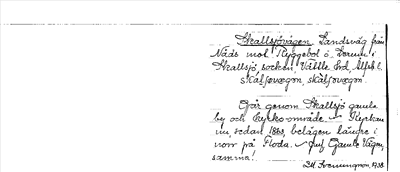 Skallsjövägen Landsväg från
Nääs mot Ryggebol o. Lerum i
Skallsjö socken, Vättle hd, Älfsb. l.
Går genom Skallsjö gamla
by och kyrkoområde. Kyrkan
nu, sedan belägen längre i
norr på Floda. Jmf. Gamla Vägen,
samma!
1938.